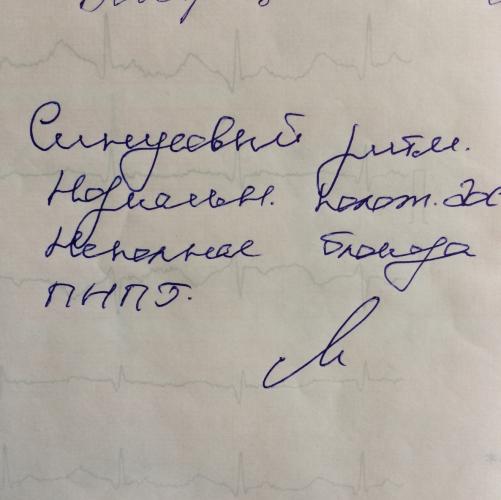 Синусовый ритм.
Нормальн. полож. ЭОС
Неполная блокада
ПНПГ.